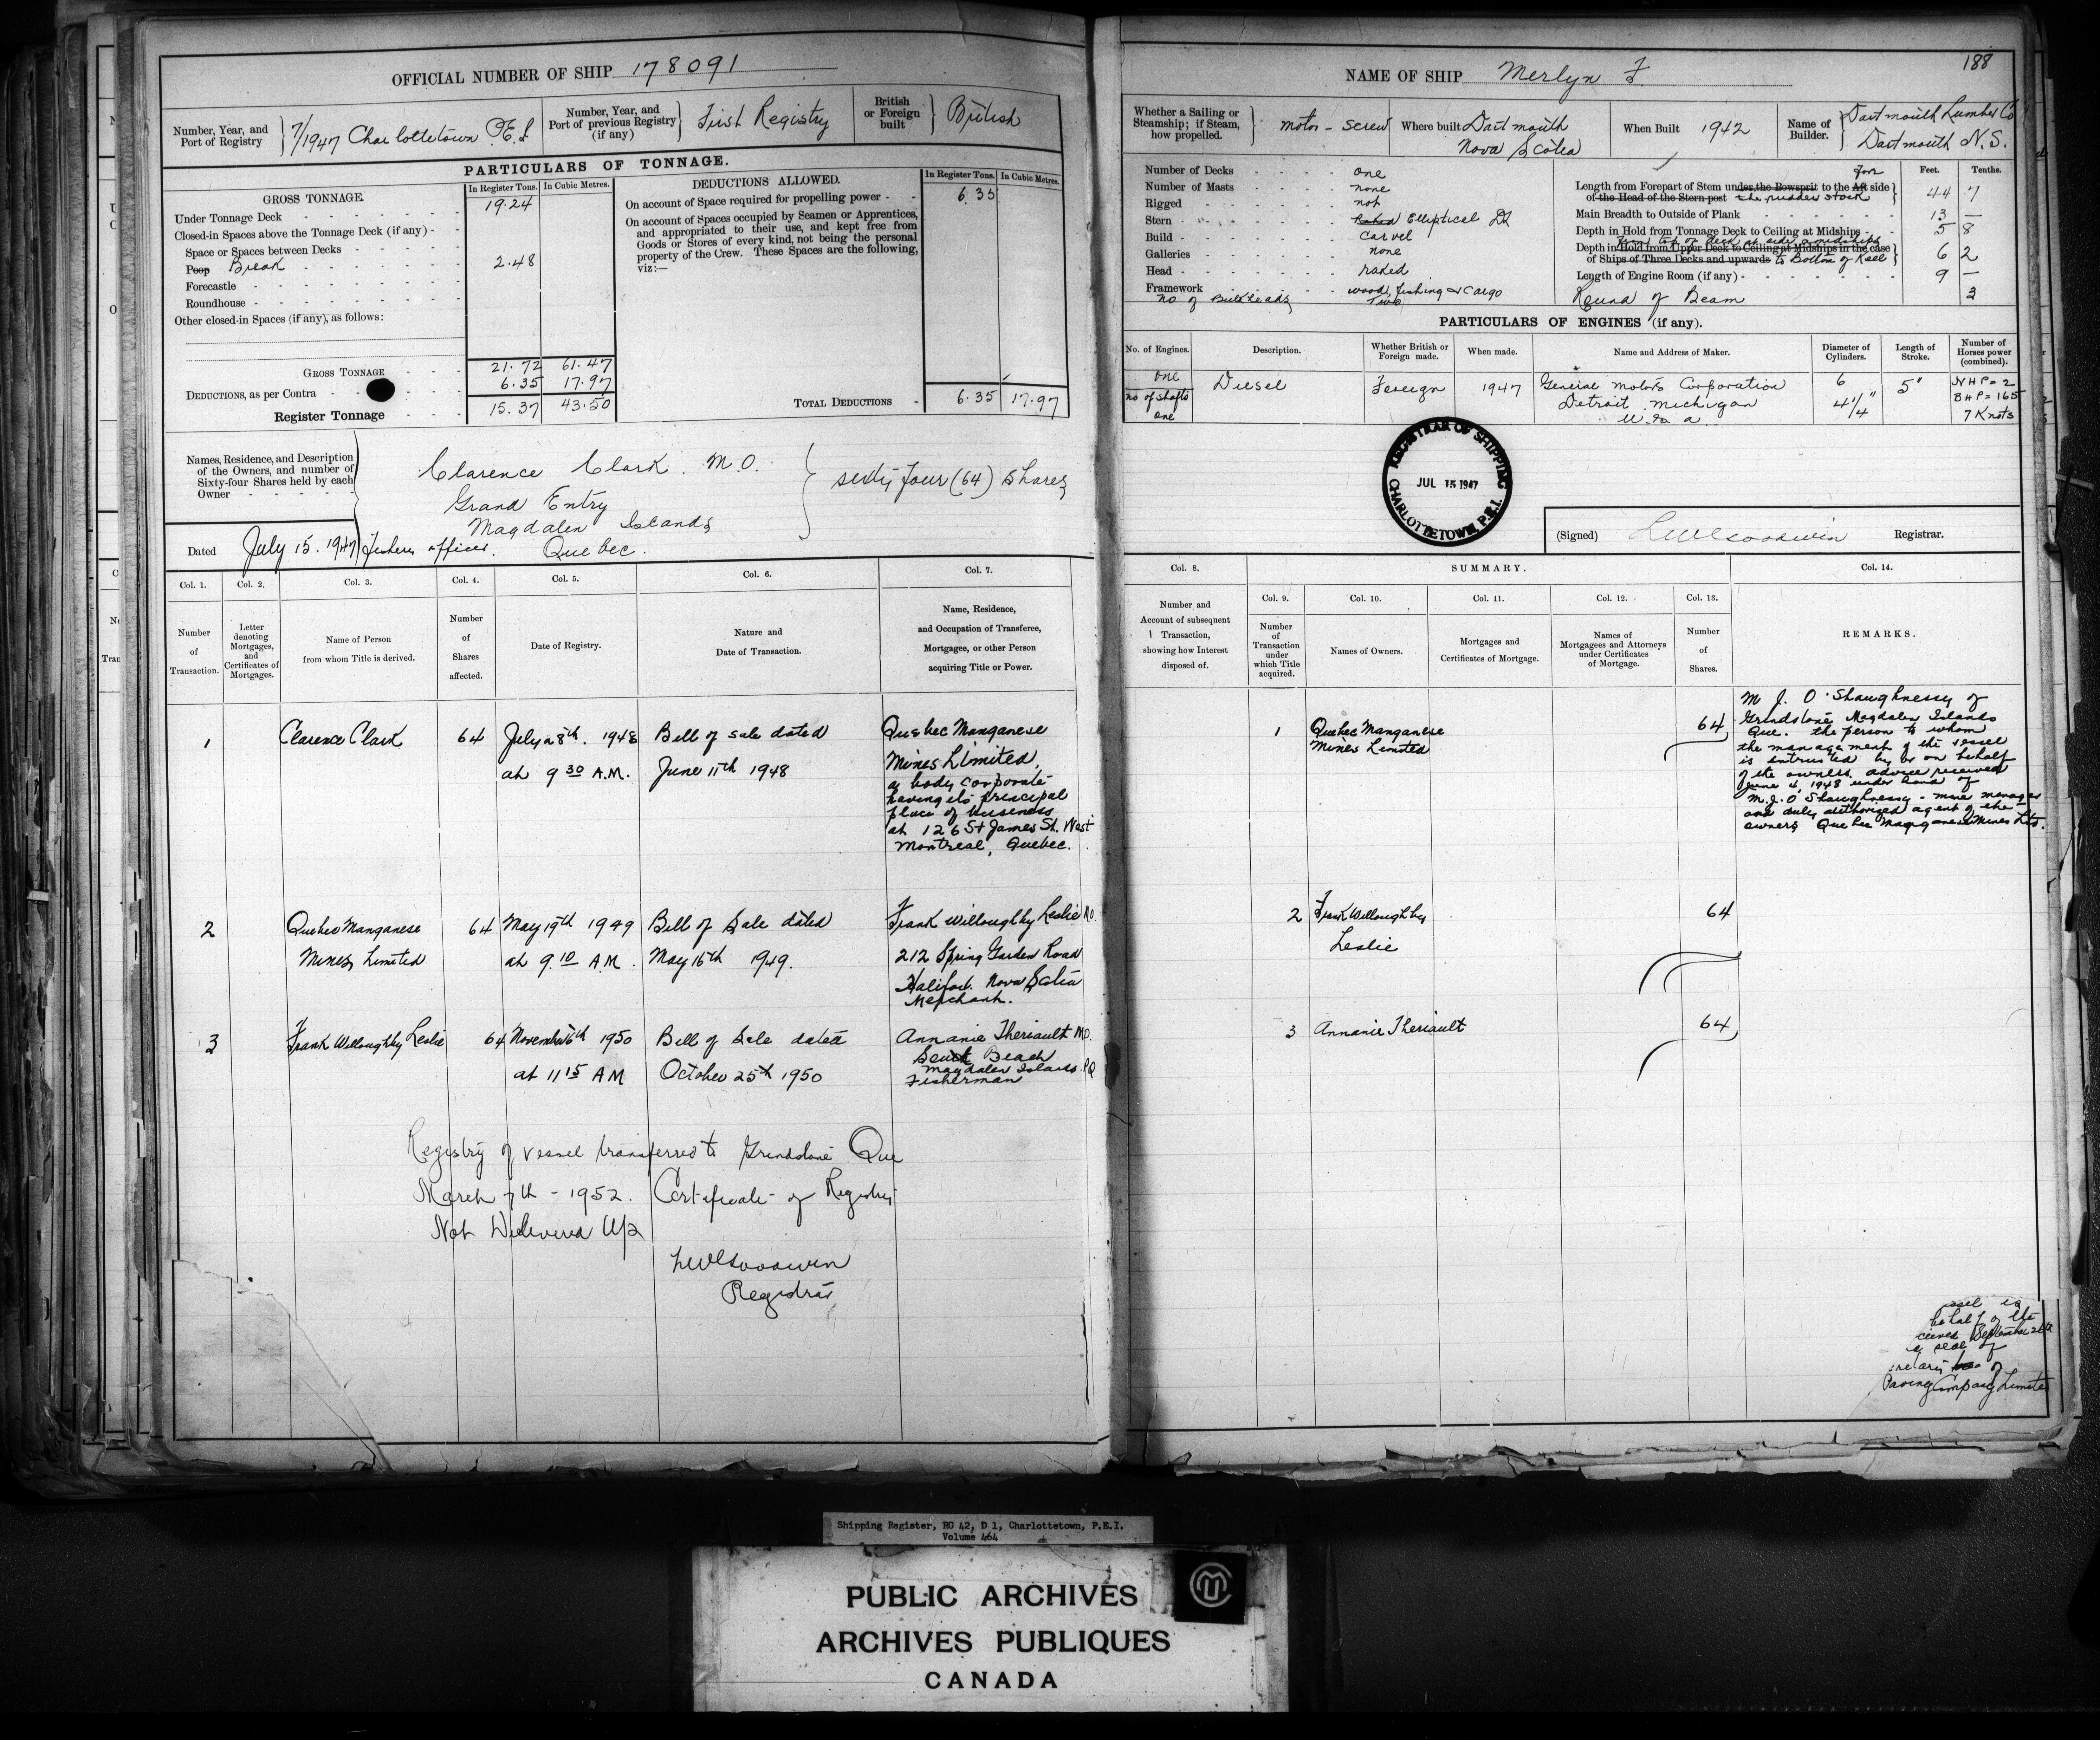 OFFICIAL NUMBER OF SHIP 178091
Number, Year, and Port of Registry } 7/1947 Charlottetown P.E.I
Number, Year, and Port of previous Registry (if any) } First Registry
British or Foreign built } British
PARTICULARS OF TONNAGE.
GROSS TONNAGE. In Register Tons. In Cubic Metres.
Under Tonnage Deck 19.24
Closed-in Spaces above the Tonnage Deck (if any)
Space or Spaces between Decks
Poop Break 2.48
Forecastle
Roundhouse
Other closed-in Spaces (if any), as follows:
GROSS TONNAGE 21.72 61.47
DEDUCTIONS, as per Contra 6.35 17.97
Register Tonnage 15.37 43.50
DEDUCTIONS ALLOWED. In Register Tons. In Cubic Metres.
On account of Space required for propelling power 6.35
On account of Spaces occupied by Seamen or Apprentices,
and appropriated to their use, and kept free from
Goods or Stores of every kind, not being the personal
property of the Crew. These Spaces are the following,
viz:—
TOTAL DEDUCTIONS 6.35 17.97
Names, Residence, and Description
of the Owners, and number of
Sixty-four Shares held by each
Owner
Clarence Clark M.O. } sixty four (64) Shares
Grand Entry
Magdalen Islands
Quebec.
Dated July 15. 1947
Col. 1. Col. 2. Col. 3. Col. 4. Col. 5. Col. 6. Col. 7.
Number of Transaction.
Letter denoting Mortgages, and Certificates of Mortgages.
Name of Person from whom Title is derived.
Number of Shares affected.
Date of Registry.
Nature and Date of Transaction.
Name, Residence, and Occupation of Transferee, Mortgagee, or other Person acquiring Title or Power.
1 Clarence Clark 64 July 28th. 1948 Bill of sale dated Quebec Manganese
at 9 30 A.M. June 11th 1948 Mines Limited,
a body corporate
having its principal
place of business
at 126 St James St. West
Montreal, Quebec.
2 Quebec Manganese 64 May 19th 1949 Bill of Sale dated Frank Willoughby Leslie M.O.
Mines Limited at 9.10 A.M. May 16th 1949. 212 Spring Garden Road
Halifax. Nova Scotia
Merchant.
3 Frank Willoughby Leslie 64 November 6th 1950 Bill of Sale dated Annanie Theriault M.O.
at 11 15 A M October 25th 1950 Beach
Magdalen Islands. P Q
Fisherman
Registry of vessel transferred to Grindstone Que
March 7th - 1952. Certificate of Registry
Not Delivered Up
LW Goodwin
Registrar
188
NAME OF SHIP Merlyn F
Whether a Sailing or Steamship; if Steam, how propelled. motor - screw
Where built Dartmouth Nova Scotia
When Built 1942
Name of Builder. } Dartmouth Lumber Co
Dartmouth N.S.
Number of Decks one
Number of Masts none
Rigged not
Stern Raked Elliptical
Build carvel
Galleries none
Head raked
Framework wood, fishing & cargo
no of Bulkheads Two
Feet. Tenths.
Length from Forepart of Stem under the Bowsprit to the Aft fore side
of the Head of the Stern-post the rudder stock 44 7
Main Breadth to Outside of Plank 13 —
Depth in Hold from Tonnage Deck to Ceiling at Midships 5 8
from top of deck at side amidships
Depth in Hold from Upper Deck to Ceiling at Midships in the case
of Ships of Three Decks and upwards to Bottom of Keel 6 2
Length of Engine Room (if any) 9 —
Round of Beam 3
PARTICULARS OF ENGINES (if any).
No. of Engines. Description. Whether British or Foreign made. When made. Name and Address of Maker. Diameter of Cylinders. Length of Stroke. Number of Horses power (combined).
one Diesel Foreign 1947 General Motors Corporation 6 5" NHP = 2
no of shafts Detroit Michigan 4 1/4" BHP = 165
one U.S.A. 7 Knots
REGISTRAR OF SHIPPING
JUL 15 1947
CHARLOTTETOWN P.E.I.
(Signed) LW Goodwin Registrar.
Col. 8. SUMMARY. Col. 14.
Col. 9. Col. 10. Col. 11. Col. 12. Col. 13.
Number and Account of subsequent Transaction, showing how Interest disposed of.
Number of Transaction under which Title acquired.
Names of Owners.
Mortgages and Certificates of Mortgage.
Names of Mortgagees and Attorneys under Certificates of Mortgage.
Number of Shares.
REMARKS.
1 Quebec Manganese 64
Mines Limited
M J. O'Shaughnessy of
Grindstone Magdalen Islands
Que. the person to whom
the management of the vessel
is entrusted by or on behalf
of the owners. advice received
June 4, 1948 under hand of
M.J. O'Shaughnessy - mine manager
and duly authorized agent of the
owners Quebec Manganese Mines Ltd.
2 Frank Willoughby 64
Leslie
3 Annanie Theriault 64
ssel is
behalf of the
ceived September
seal of
of
Paving Company Limited
Shipping Register, RG 42, D 1, Charlottetown, P.E.I.
Volume 464
PUBLIC ARCHIVES
ARCHIVES PUBLIQUES
CANADA